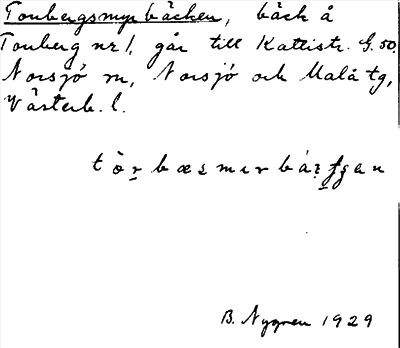 Tonbergsmyrbäcken, bäck å
Tonberg nr 1, går till Kattistr. G. 50.
Norsjö sn, Norsjö och Malå tg,
Västerb. l.
B. Nygren 1929